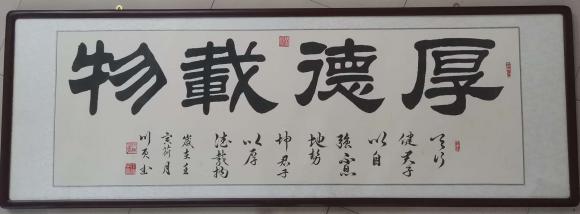 厚德載物
天行
健君子
以自
強不息
地势
坤君子
以厚
德載物
歲在壬
寅荷月